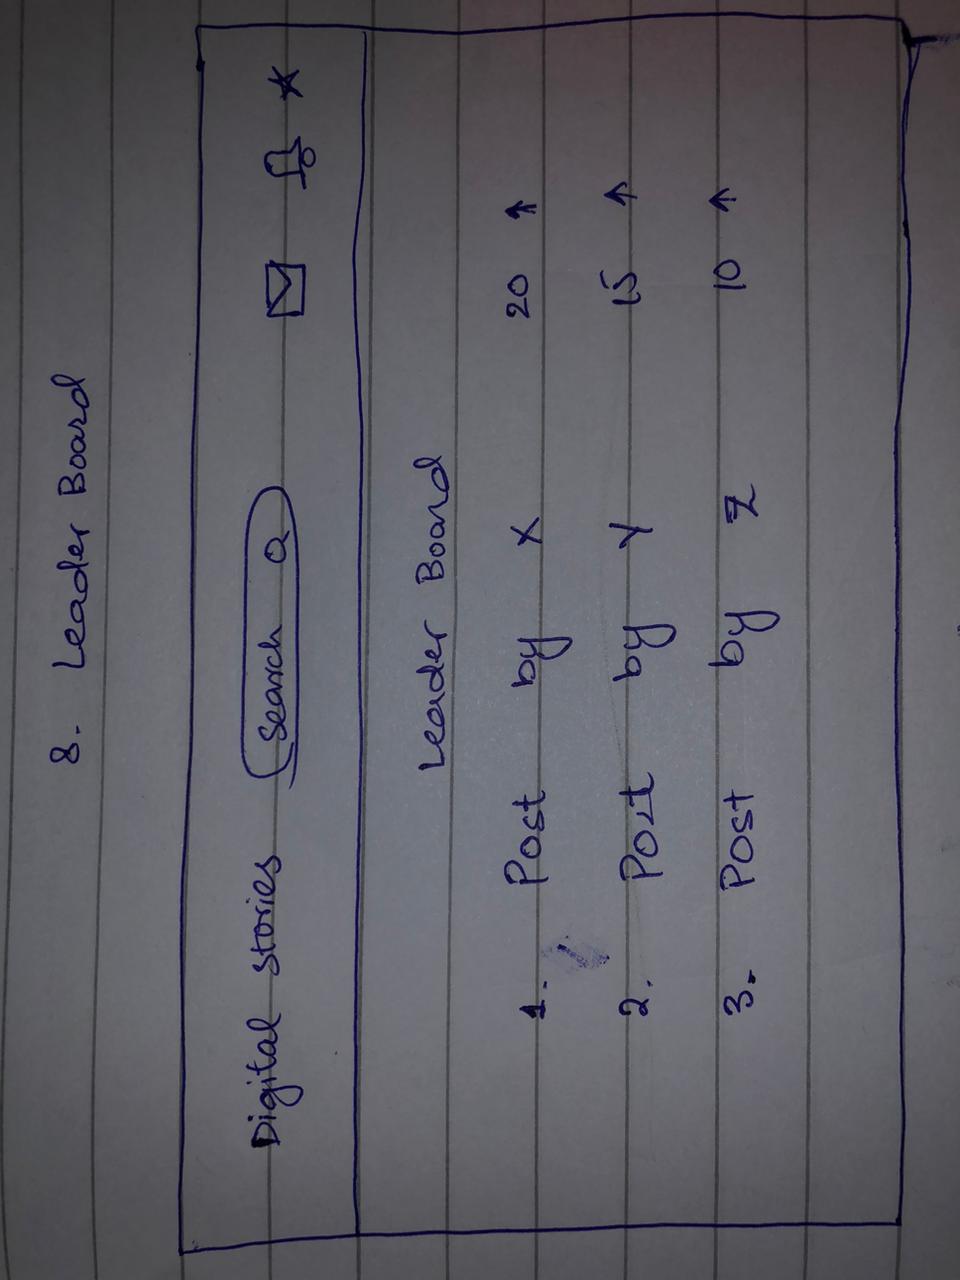 8. Leader Board
Digital stories Search
Leader Board
1. Post by X 20 ↑
2. Post by Y 15 ↑
3. Post by Z 10 ↑